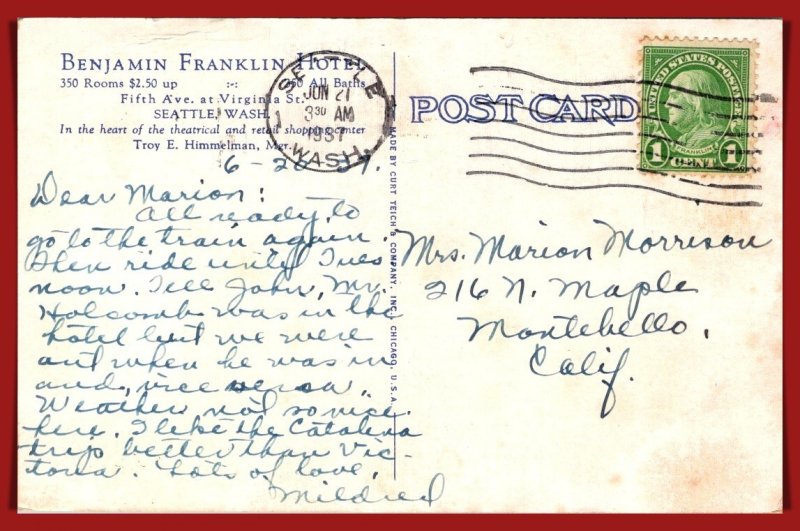 BENJAMIN FRANKLIN HOTEL
350 Rooms $2.50 up -:- 350 All Baths
Fifth Ave. at Virginia St.
SEATTLE, WASH.
In the heart of the theatrical and retail shopping center
Troy E. Himmelman, Mgr.
6-20-37.
Dear Marion:
All ready to
go to the train again.
Then ride until Tues
noon. Tell John, Mr.
Holcomb was in the
hotel but we were
out when he was in
and, vice versa.
Weather not so nice
here. I like the Catalina
trip better than Vic-
toria. Lots of love,
Mildred
SEATTLE
JUN 21
3 30 AM
1937
WASH.
MADE BY CURT TEICH & COMPANY, INC., CHICAGO, U.S.A.
POST CARD
UNITED STATES POSTAGE
FRANKLIN
1 CENT 1
Mrs. Marion Morrison
216 N. Maple
Montebello,
Calif.